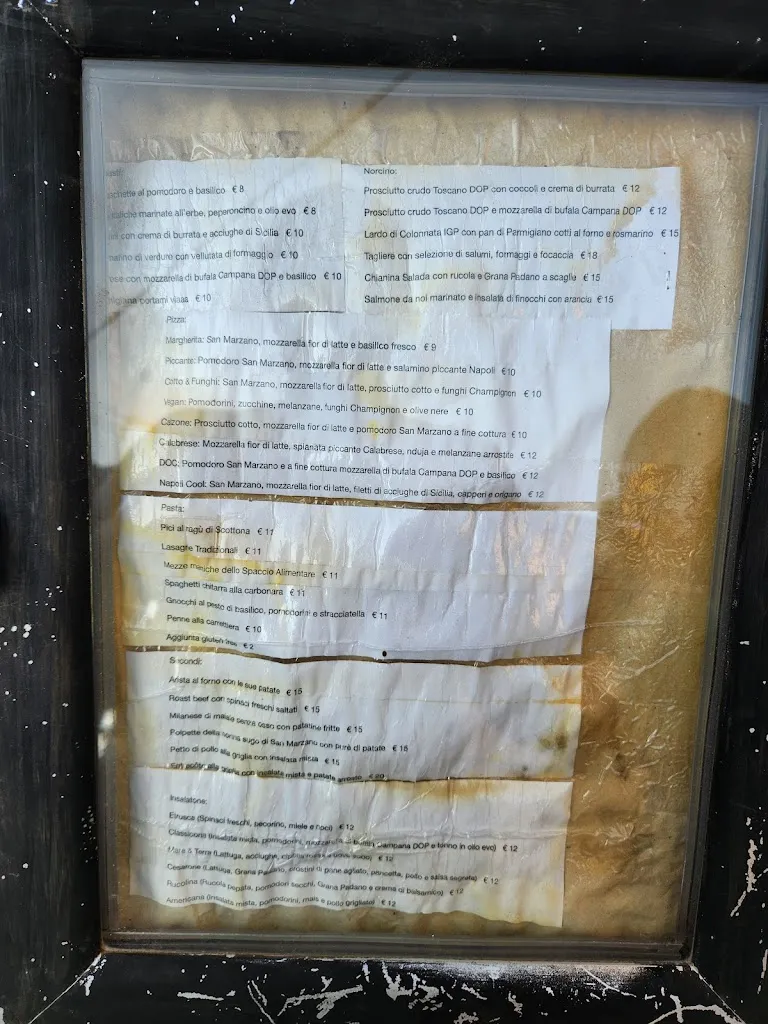 al pomodoro e basilico € 8
marinate all'erbe, peperoncino e olio evo € 8
con crema di burrata e acciughe di Sicilia € 10
di verdure con vellutata di formaggio € 10
con mozzarella di bufala Campana DOP e basilico € 10
€ 10
Norcino:
Prosciutto crudo Toscano DOP con coccoli e crema di burrata € 12
Prosciutto crudo Toscano DOP e mozzarella di bufala Campana DOP € 12
Lardo di Colonnata IGP con pan di Parmigiano cotti al forno e rosmarino € 15
Tagliere con selezione di salumi, formaggi e focaccia € 18
Chianina Salada con rucola e Grana Padano a scaglie € 15
Salmone da noi marinato e insalata di finocchi con arancia € 15
Pizza:
Margherita: San Marzano, mozzarella fior di latte e basilico fresco € 9
Piccante: Pomodoro San Marzano, mozzarella fior di latte e salamino piccante Napoli € 10
Cotto & Funghi: San Marzano, mozzarella fior di latte, prosciutto cotto e funghi Champignon € 10
Vegan: Pomodorini, zucchine, melanzane, funghi Champignon e olive nere € 10
Cazone: Prosciutto cotto, mozzarella fior di latte e pomodoro San Marzano a fine cottura € 10
Calabrese: Mozzarella fior di latte, spianata piccante Calabrese, nduja e melanzane arrostite € 12
DOC: Pomodoro San Marzano e a fine cottura mozzarella di bufala Campana DOP e basilico € 12
Napoli Cool: San Marzano, mozzarella fior di latte, filetti di acciughe di Sicilia, capperi e origano € 12
Pasta:
Pici al ragù di Scottona € 11
Lasagne Tradizionali € 11
Mezze maniche dello Spaccio Alimentare € 11
Spaghetti chitarra alla carbonara € 11
Gnocchi al pesto di basilico, pomodorini e stracciatella € 11
Penne alla carrettiera € 10
Aggiunta gluten free € 2
Secondi:
Arista al forno con le sue patate € 15
Roast beef con spinaci freschi saltati € 15
Milanese di maiale senza osso con patatine fritte € 15
Polpette della nonna sugo di San Marzano con purè di patate € 15
Petto di pollo alla griglia con insalata mista € 15
alla griglia con insalata mista e patate arrosto € 20
Insalatone:
Etrusca (Spinaci freschi, pecorino, miele e noci) € 12
Classicona (Insalata mista, pomodorini, mozzarella di bufala Campana DOP e tonno in olio evo) € 12
Mare & Terra (Lattuga, acciughe, € 12
Cesarona (Lattuga, Grana Padano, crostini di pane agliato, pancetta, pollo e salsa segreta) € 12
Rucolina (Rucola pepata, pomodori secchi, Grana Padano e crema di balsamico) € 12
Americana (Insalata mista, pomodorini, mais e pollo grigliato) € 12